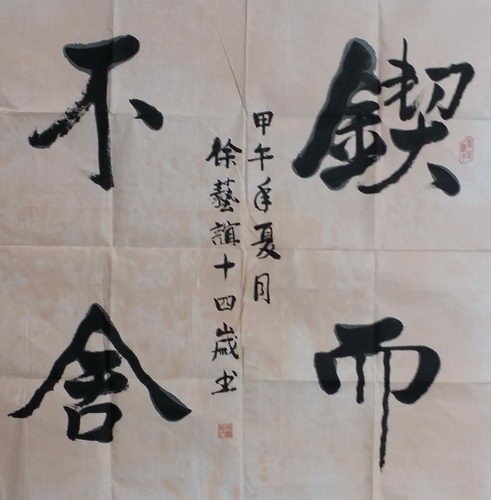 鍥而
不舍
甲午年夏月
徐藝誼十四歲书